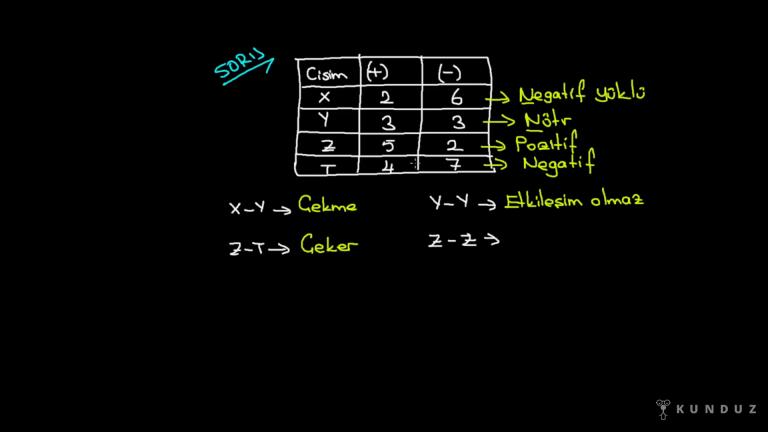 SORU
Cisim (+) (-)
X 2 6 → Negatif yüklü
Y 3 3 → Nötr
Z 5 2 → Pozitif
T 4 7 → Negatif
X-Y → Çekme Y-Y → Etkileşim olmaz
Z-T → Çeker Z-Z →
KUNDUZ